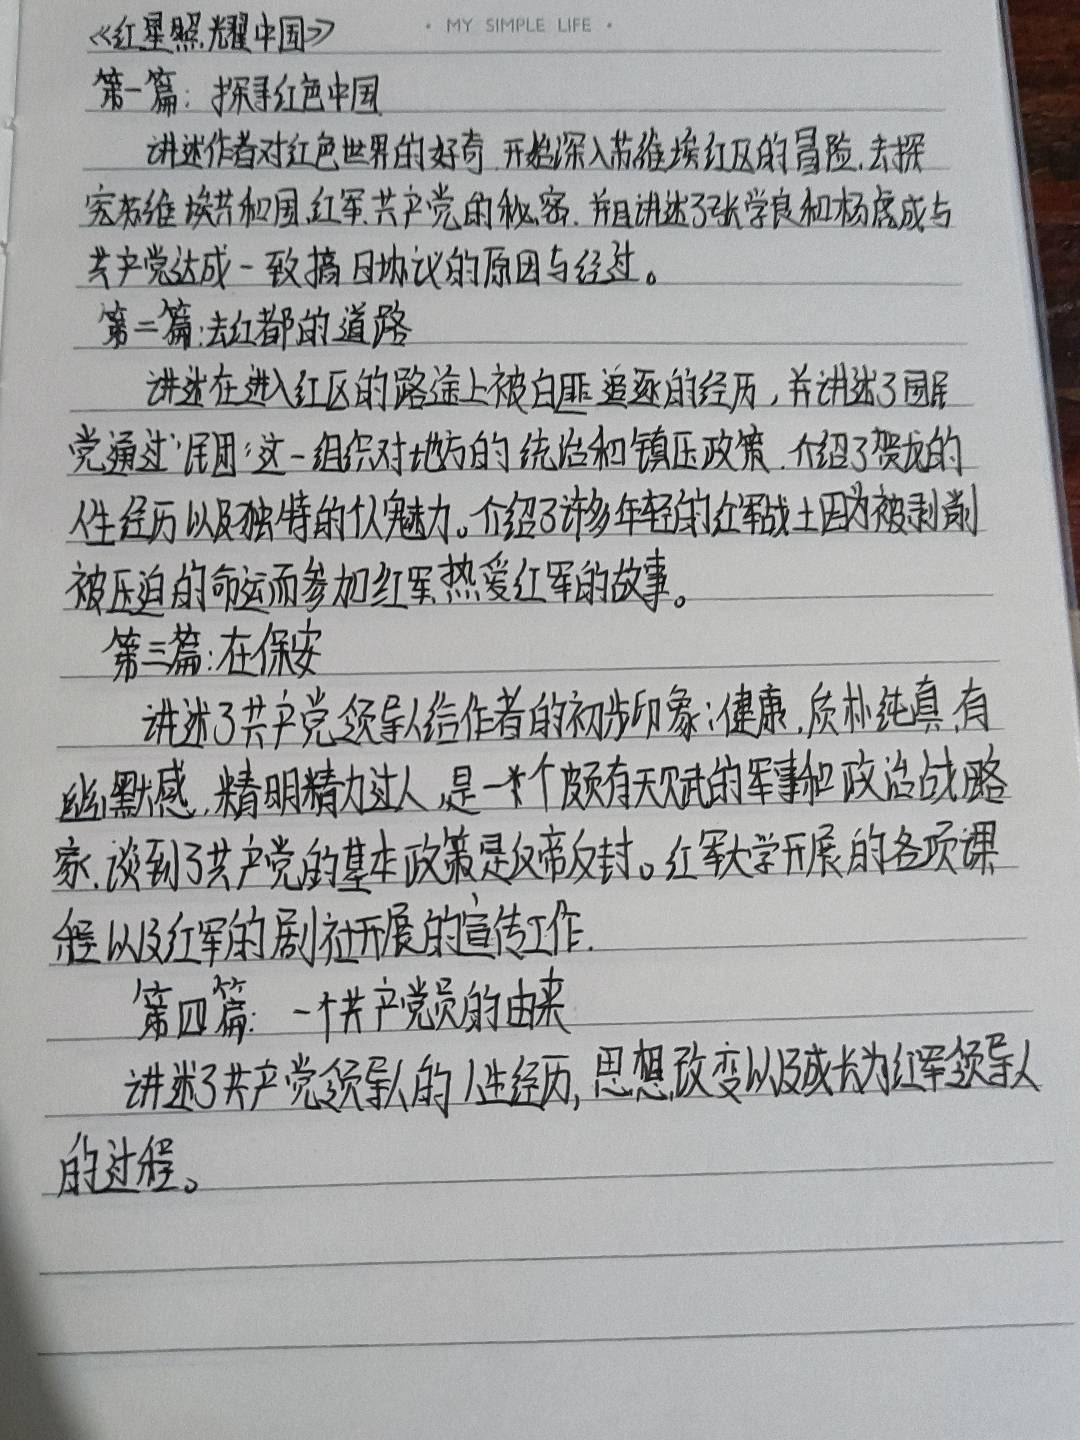 《红星照耀中国》
· MY SIMPLE LIFE ·
第一篇：探寻红色中国
讲述作者对红色世界的好奇.开始深入苏维埃红区的冒险.去探
究苏维埃共和国.红军.共产党的秘密.并且讲述了张学良和杨虎成与
共产党达成一致搞日协议的原因与经过。
第二篇：去红都的道路
讲述在进入红区的路途上被白匪追逐的经历，并讲述了国民
党通过“民团”这一组织对地方的统治和镇压政策.介绍了贺龙的
人生经历以及独特的个人魅力。介绍了许多年轻的红军战士因为被剥削
被压迫的命运而参加红军.热爱红军的故事。
第三篇：在保安
讲述了共产党领导人给作者的初步印象：健康.质朴纯真.有
幽默感.精明精力过人.是一个颇有天赋的军事和政治战略
家.谈到了共产党的基本政策是反帝反封。红军大学开展的各项课
程以及红军的剧社开展的宣传工作.
第四篇：一个共产党员的由来
讲述了共产党领导人的人生经历，思想.改变以及成长为红军领导人
的过程。